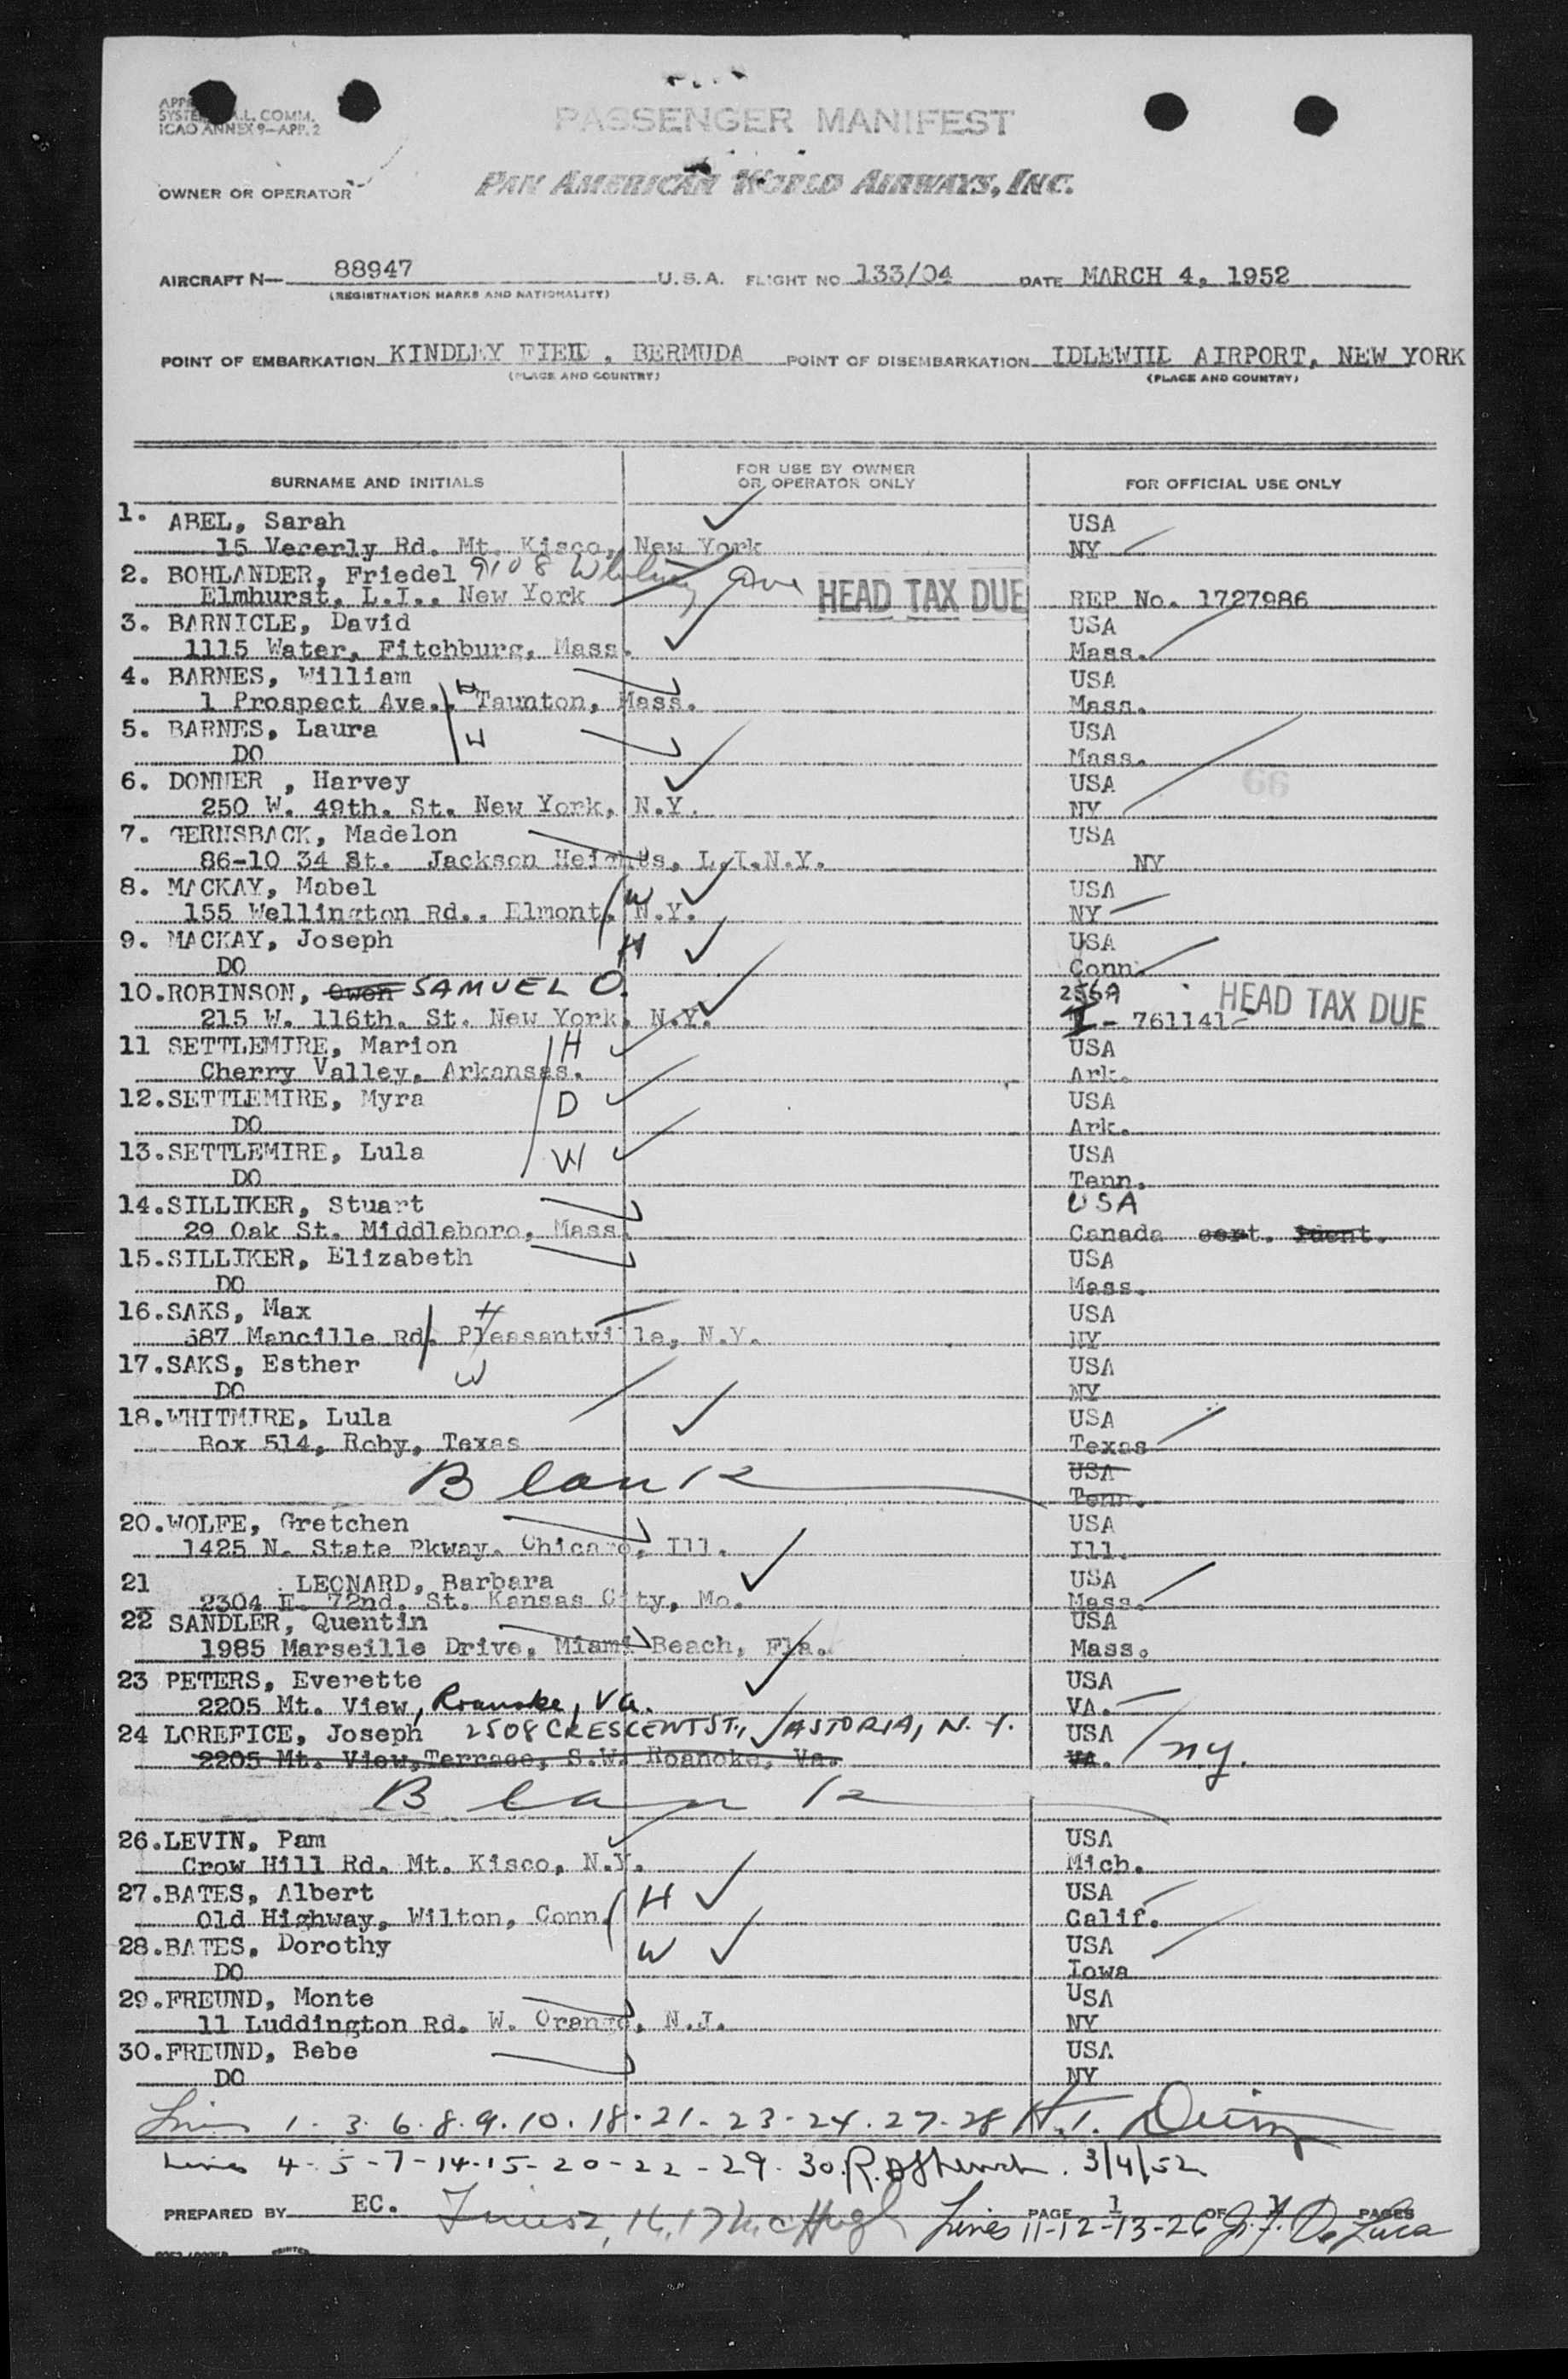 SYSTEM A.L. COMM.
ICAO ANNEX 9—APP. 2
PASSENGER MANIFEST
OWNER OR OPERATOR
PAN AMERICAN WORLD AIRWAYS, INC.
AIRCRAFT N— 88947 U.S.A. FLIGHT NO 133/04 DATE MARCH 4, 1952
(REGISTRATION MARKS AND NATIONALITY)
POINT OF EMBARKATION KINDLEY FIELD, BERMUDA POINT OF DISEMBARKATION IDLEWILD AIRPORT, NEW YORK
(PLACE AND COUNTRY) (PLACE AND COUNTRY)
SURNAME AND INITIALS FOR USE BY OWNER OR OPERATOR ONLY FOR OFFICIAL USE ONLY
1. ABEL, Sarah USA
15 Vererly Rd. Mt. Kisco, New York NY
2. BOHLANDER, Friedel 9108 Whitney Ave HEAD TAX DUE
Elmhurst, L.I., New York REP No. 1727986
3. BARNICLE, David USA
1115 Water, Fitchburg, Mass. Mass.
4. BARNES, William H USA
1 Prospect Ave., Taunton, Mass. Mass.
5. BARNES, Laura W USA
DO Mass.
6. DONNER , Harvey USA 66
250 W. 49th. St. New York, N.Y. NY
7. GERNSBACK, Madelon USA
86-10 34 St. Jackson Heights, L.I.N.Y. NY
8. MACKAY, Mabel W USA
155 Wellington Rd., Elmont, N.Y. NY
9. MACKAY, Joseph H USA
DO Conn.
10.ROBINSON, Owen SAMUEL O. 256A HEAD TAX DUE
215 W. 116th. St. New York, N.Y. I - 761141
11 SETTLEMIRE, Marion H USA
Cherry Valley, Arkansas. Ark.
12.SETTLEMIRE, Myra D USA
DO Ark.
13.SETTLEMIRE, Lula W USA
DO Tenn.
14.SILLIKER, Stuart USA
29 Oak St. Middleboro, Mass. Canada cert. ident.
15.SILLIKER, Elizabeth USA
DO Mass.
16.SAKS, Max H USA
587 Mancille Rd. Pleasantville, N.Y. NY
17.SAKS, Esther W USA
DO NY
18.WHITMIRE, Lula USA
Box 514, Roby, Texas Texas
Blank USA
Tenn.
20.WOLFE, Gretchen USA
1425 N. State Pkway. Chicago, Ill. Ill.
21 LEONARD, Barbara USA
2304 E. 72nd. St. Kansas City, Mo. Mass.
22 SANDLER, Quentin USA
1985 Marseille Drive, Miami Beach, Fla. Mass.
23 PETERS, Everette USA
2205 Mt. View, Roanoke, Va. VA.
24 LOREFICE, Joseph 2508 CRESCENT ST., ASTORIA, N.Y. USA
2205 Mt. View,Terrace, S.W. Roanoke, Va. VA. NY.
Blank
26.LEVIN, Pam USA
Crow Hill Rd. Mt. Kisco, N.Y. Mich.
27.BATES, Albert H USA
Old Highway, Wilton, Conn. Calif.
28.BATES, Dorothy W USA
DO Iowa
29.FREUND, Monte USA
11 Luddington Rd. W. Orange, N.J. NY
30.FREUND, Bebe USA
DO NY
Lines 1-3-6-8-9-10-18-21-23-24-27-28
Lines 4-5-7-14-15-20-22-29-30 3/4/52
PREPARED BY EC. Lines 2, 16, 17 McHugh PAGE 1 OF 1 PAGES
Lines 11-12-13-26 J. DeLuca